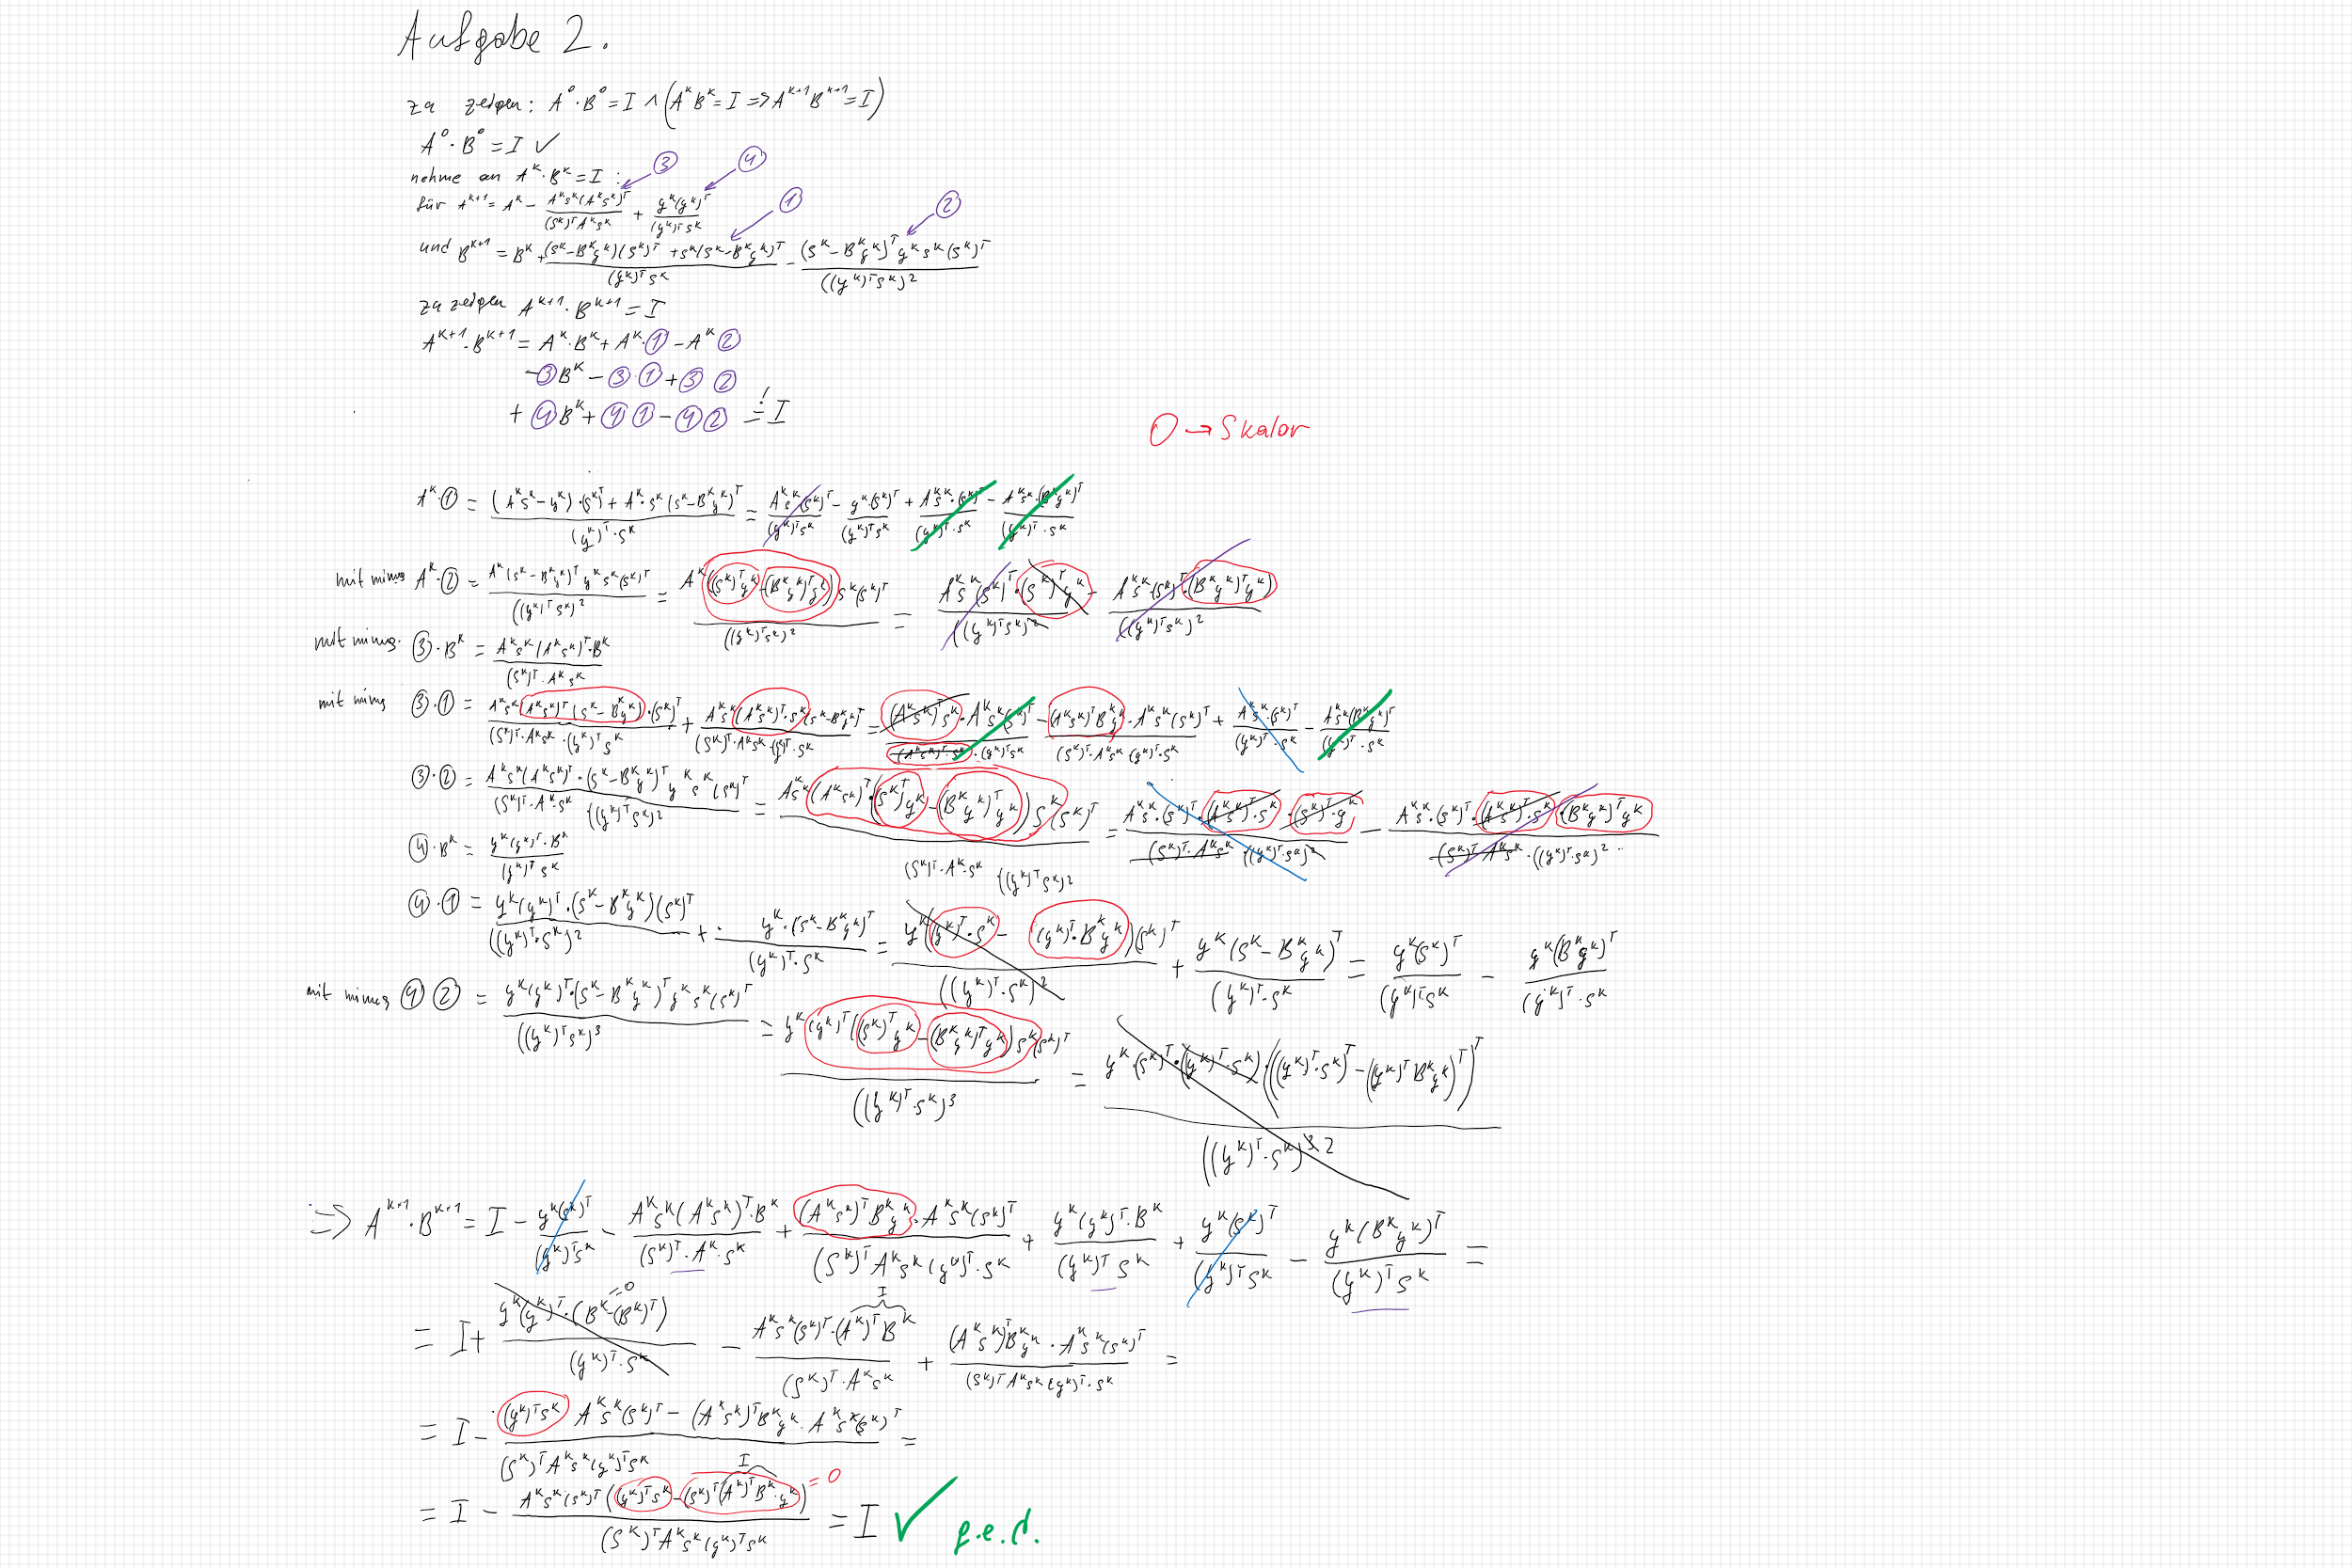 Aufgabe 2.
zu zeigen: A⁰·B⁰ = I ∧ (A^k B^k = I => A^{k+1} B^{k+1} = I)
A⁰·B⁰ = I ✓
nehme an A^k·B^k = I : ③ ④
für A^{k+1} = A^k - (A^k s^k (A^k s^k)^T)/((s^k)^T A^k s^k) + (y^k (y^k)^T)/((y^k)^T s^k) ① ②
und B^{k+1} = B^k + ((s^k - B^k y^k)(s^k)^T + s^k (s^k - B^k y^k)^T)/((y^k)^T s^k) - ((s^k - B^k y^k)^T y^k s^k (s^k)^T)/(((y^k)^T s^k)^2)
zu zeigen A^{k+1}·B^{k+1} = I
A^{k+1}·B^{k+1} = A^k·B^k + A^k·① - A^k ②
-③B^k - ③·① + ③ ②
+ ④B^k + ④ ① - ④② =! I
O → Skalar
A^k·① = ((A^k s^k - y^k)·(s^k)^T + A^k·s^k (s^k - B^k y^k)^T)/((y^k)^T·s^k) = (A^k s^k (s^k)^T)/((y^k)^T s^k) - (y^k·(s^k)^T)/((y^k)^T s^k) + (A^k s^k·(s^k)^T)/((y^k)^T·s^k) - (A^k s^k·(B^k y^k)^T)/((y^k)^T·s^k)
mit minus A^k·② = (A^k (s^k - B^k y^k)^T y^k s^k (s^k)^T)/(((y^k)^T s^k)^2) = (A^k ((s^k)^T y^k - (B^k y^k)^T y^k) s^k (s^k)^T)/(((y^k)^T s^k)^2) = (A^k s^k (s^k)^T·(s^k)^T y^k)/(((y^k)^T s^k)^2) - (A^k s^k·(s^k)^T·(B^k y^k)^T y^k)/(((y^k)^T s^k)^2)
mit minus. ③·B^k = (A^k s^k (A^k s^k)^T·B^k)/((s^k)^T·A^k s^k)
mit minus ③·① = (A^k s^k (A^k s^k)^T (s^k - B^k y^k)·(s^k)^T)/((s^k)^T·A^k s^k·(y^k)^T s^k) + (A^k s^k (A^k s^k)^T·s^k (s^k - B^k y^k)^T)/((s^k)^T·A^k s^k·(y^k)^T·s^k) = ((A^k s^k)^T s^k·A^k s^k (s^k)^T)/((A^k s^k)^T·s^k·(y^k)^T s^k) - ((A^k s^k)^T B^k y^k·A^k s^k (s^k)^T)/((s^k)^T·A^k s^k (y^k)^T·s^k) + (A^k s^k·(s^k)^T)/((y^k)^T·s^k) - (A^k s^k (B^k y^k)^T)/((y^k)^T·s^k)
③·② = (A^k s^k (A^k s^k)^T·(s^k - B^k y^k)^T y^k s^k (s^k)^T)/((s^k)^T·A^k·s^k ((y^k)^T s^k)^2) = (A s^k (A^k s^k)^T·((s^k)^T y^k - (B^k y^k)^T y^k) s^k (s^k)^T)/((s^k)^T·A^k·s^k ((y^k)^T s^k)^2) = (A^k s^k·(s^k)^T·(A^k s^k)^T·s^k·(s^k)^T·y^k)/((s^k)^T·A^k s^k·((y^k)^T·s^k)^2) - (A^k s^k·(s^k)^T·(A^k s^k)^T·s^k·(B^k y^k)^T y^k)/((s^k)^T·A^k s^k·((y^k)^T·s^k)^2)
④·B^k = (y^k (y^k)^T·B^k)/((y^k)^T s^k)
④·① = (y^k (y^k)^T·(s^k - B^k y^k)(s^k)^T)/(((y^k)^T·s^k)^2) + (y^k·(s^k - B^k y^k)^T)/((y^k)^T·s^k) = (y^k ((y^k)^T·s^k - (y^k)^T·B^k y^k)(s^k)^T)/(((y^k)^T·s^k)^2) + (y^k (s^k - B^k y^k)^T)/((y^k)^T·s^k) = (y^k (s^k)^T)/((y^k)^T s^k) - (y^k (B^k y^k)^T)/((y^k)^T·s^k)
mit minus ④ ② = (y^k (y^k)^T·(s^k - B^k y^k)^T y^k s^k (s^k)^T)/(((y^k)^T s^k)^3) = (y^k (y^k)^T ((s^k)^T y^k - (B^k y^k)^T y^k) s^k (s^k)^T)/(((y^k)^T·s^k)^3) = (y^k·(s^k)^T·((y^k)^T·s^k)·(((y^k)^T·s^k)^T - ((y^k)^T B^k y^k)^T)^T)/(((y^k)^T·s^k)^3 2)
=> A^{k+1}·B^{k+1} = I - (y^k (s^k)^T)/((y^k)^T s^k) - (A^k s^k (A^k s^k)^T·B^k)/((s^k)^T·A^k·s^k) + ((A^k s^k)^T B^k y^k·A^k s^k (s^k)^T)/((s^k)^T A^k s^k (y^k)^T·s^k) + (y^k (y^k)^T·B^k)/((y^k)^T s^k) + (y^k (s^k)^T)/((y^k)^T s^k) - (y^k (B^k y^k)^T)/((y^k)^T s^k) =
= I + (y^k (y^k)^T·(B^k - (B^k)^T) =0)/((y^k)^T·s^k) - (A^k s^k (s^k)^T·(A^k)^T B^k I)/((s^k)^T·A^k s^k) + ((A^k s^k)^T B^k y^k·A^k s^k (s^k)^T)/((s^k)^T A^k s^k (y^k)^T·s^k) =
= I - ((y^k)^T s^k A^k s^k (s^k)^T - (A^k s^k)^T B^k y^k·A^k s^k (s^k)^T)/((s^k)^T A^k s^k (y^k)^T s^k) =
= I - (A^k s^k (s^k)^T ((y^k)^T s^k - (s^k)^T (A^k)^T B^k·y^k) I = 0)/((s^k)^T A^k s^k (y^k)^T s^k) = I ✓ q.e.d.